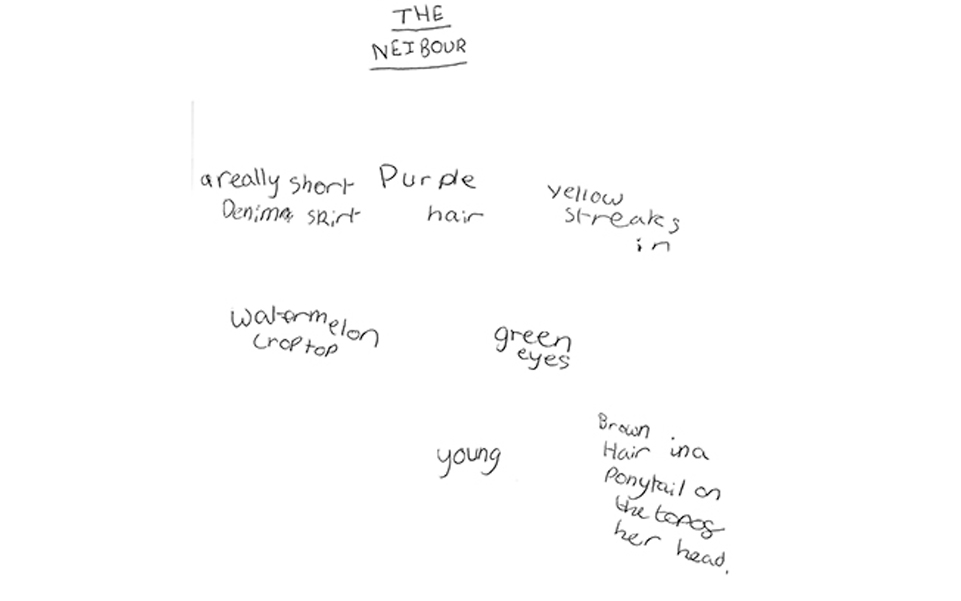 THE
NEIBOUR
a really short
Denima skirt
Purple
hair
yellow
streaks
in
watermelon
croptop
green
eyes
young
Brown
Hair in a
Ponytail on
the top of
her head.